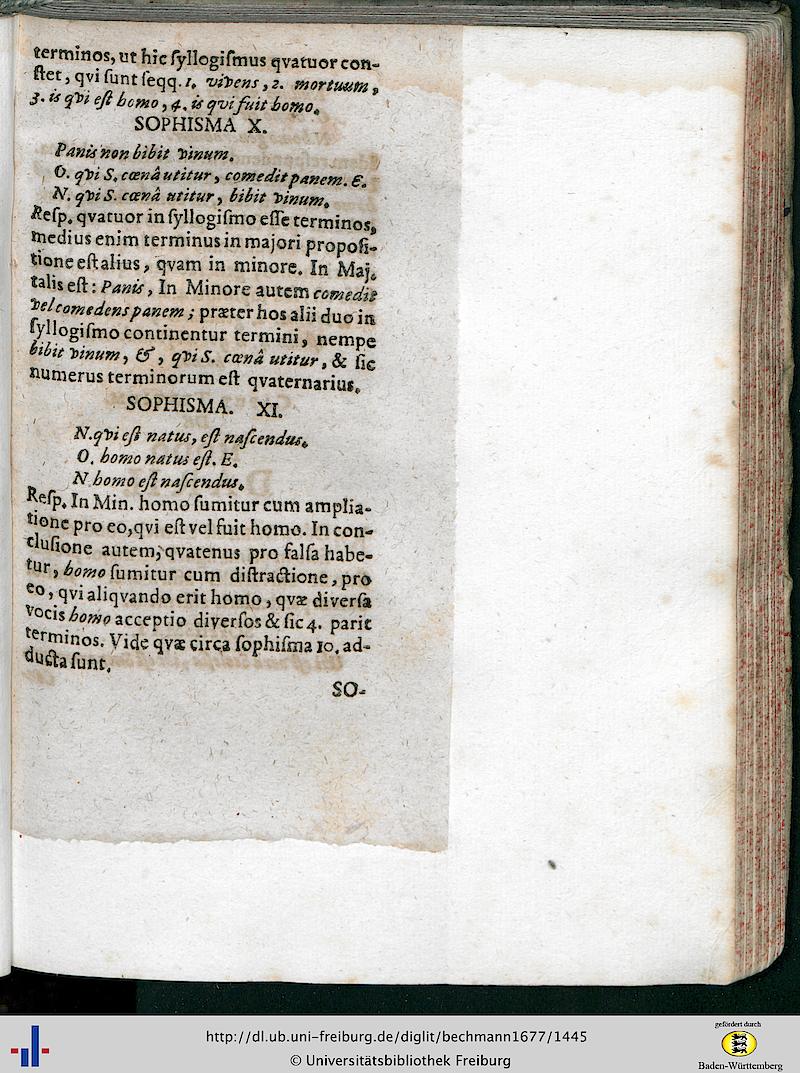 terminos, ut hic ſyllogiſmus qvatuor con-
ſtet, qvi ſunt ſeqq. 1. vivens, 2. mortuum,
3. is qvi eſt homo, 4. is qvi fuit homo.
SOPHISMA X.
Panis non bibit vinum.
O. qvi S. cœnâ utitur, comedit panem. E.
N. qvi S. cœnâ utitur, bibit vinum.
Reſp. qvatuor in ſyllogiſmo eſſe terminos,
medius enim terminus in majori propoſi-
tione eſt alius, qvam in minore. In Maj.
talis eſt: Panis, In Minore autem comedit
vel comedens panem; præter hos alii duo in
ſyllogiſmo continentur termini, nempe
bibit vinum, &, qvi S. cœnâ utitur, & ſic
numerus terminorum eſt qvaternarius.
SOPHISMA. XI.
N. qvi eſt natus, eſt naſcendus.
O. homo natus eſt. E.
N homo eſt naſcendus.
Reſp. In Min. homo ſumitur cum amplia-
tione pro eo, qvi eſt vel fuit homo. In con-
cluſione autem, qvatenus pro falſa habe-
tur, homo ſumitur cum diſtractione, pro
eo, qvi aliqvando erit homo, qvæ diverſa
vocis homo acceptio diverſos & ſic 4. parit
terminos. Vide qvæ circa ſophiſma 10. ad-
ducta ſunt.
SO-
http://dl.ub.uni-freiburg.de/diglit/bechmann1677/1445
© Universitätsbibliothek Freiburg
gefördert durch
Baden-Württemberg